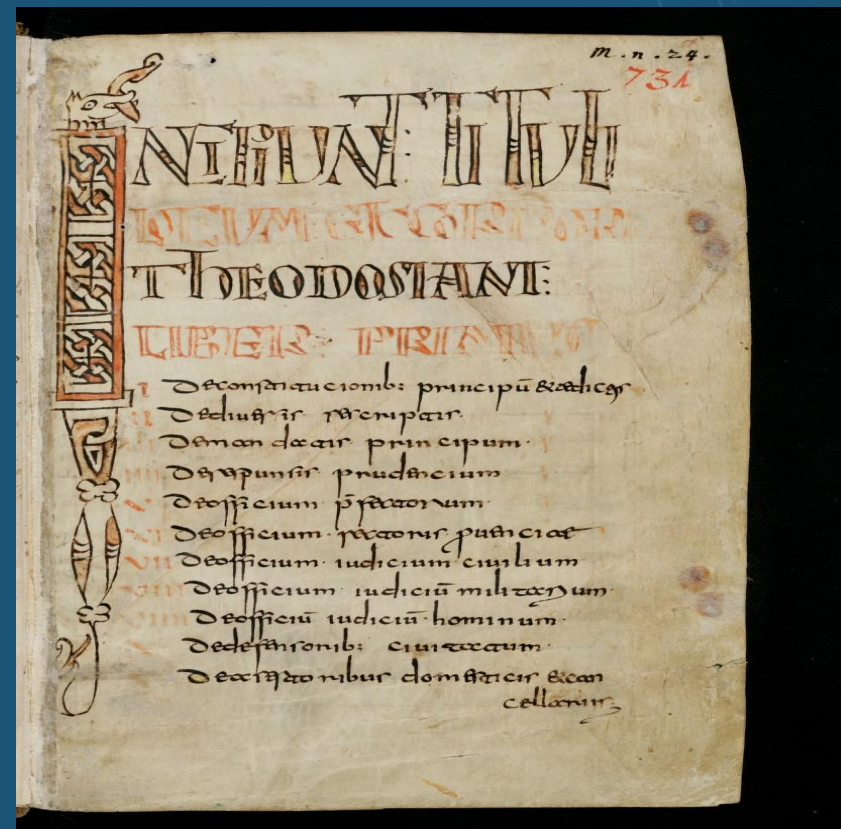 m. n. 24.
731
INCIPIUNT: TITULI
DEUM ET CORPORE
THEODOSIANI:
LIBER PRIMUS
I Deconstitucionib: principū & edictis
II Dediuersis rescriptis.
Demandatis principum.
Deresponsis prudencium
V Deofficium p̄fectorum.
VI Deofficium. rectoris prouenciae
VII Deofficium. iudicium ciuilium
VIII Deofficium iudiciū militarium.
VIIII Deofficiū iudiciū hominum.
Dedefensorib: ciuitatum.
Deadsessoribus domesticis & can
cellariis;